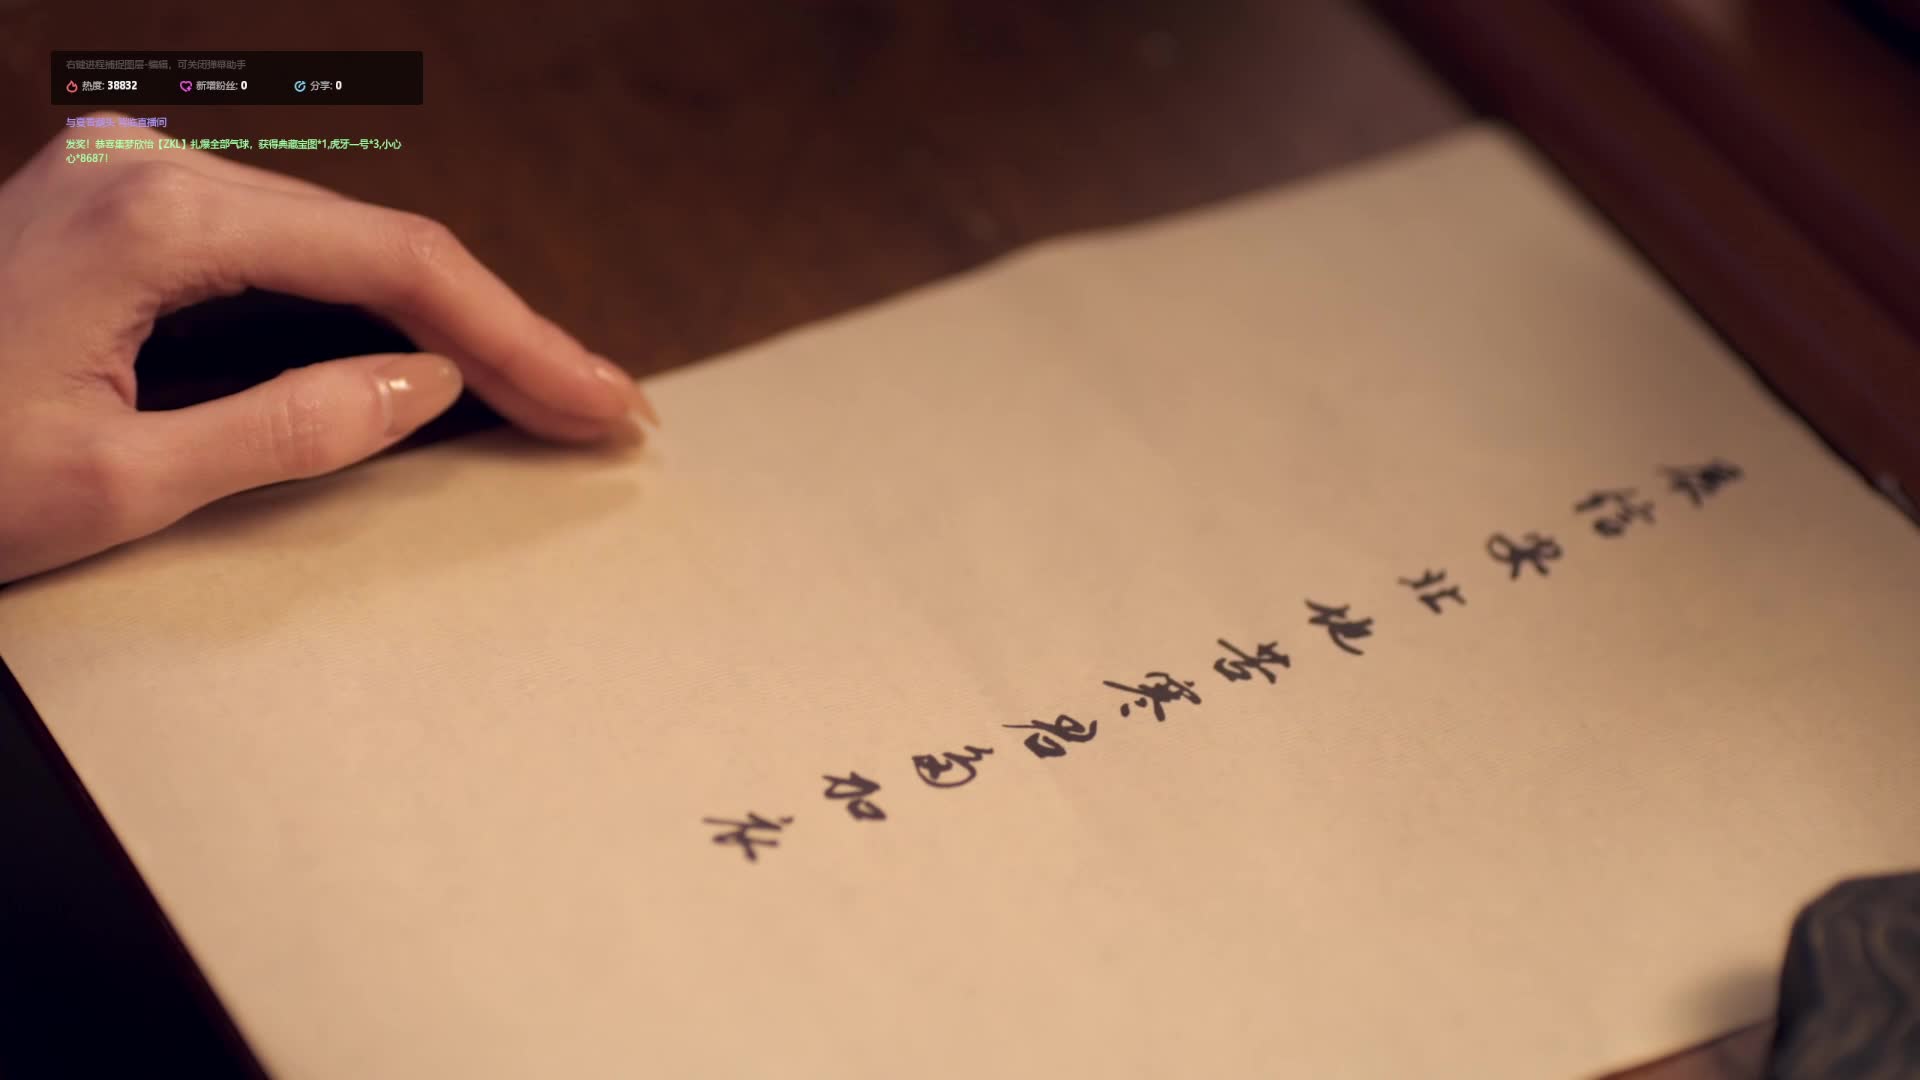 右键进程捕捉图层-编辑，可关闭弹幕助手
热度: 38832 新增粉丝: 0 分享: 0
降临直播间
发奖！恭喜集梦欣怡【ZKL】扎爆全部气球，获得典藏宝图*1,虎牙一号*3,小心
心*8687！
展信安北地苦寒君加衣